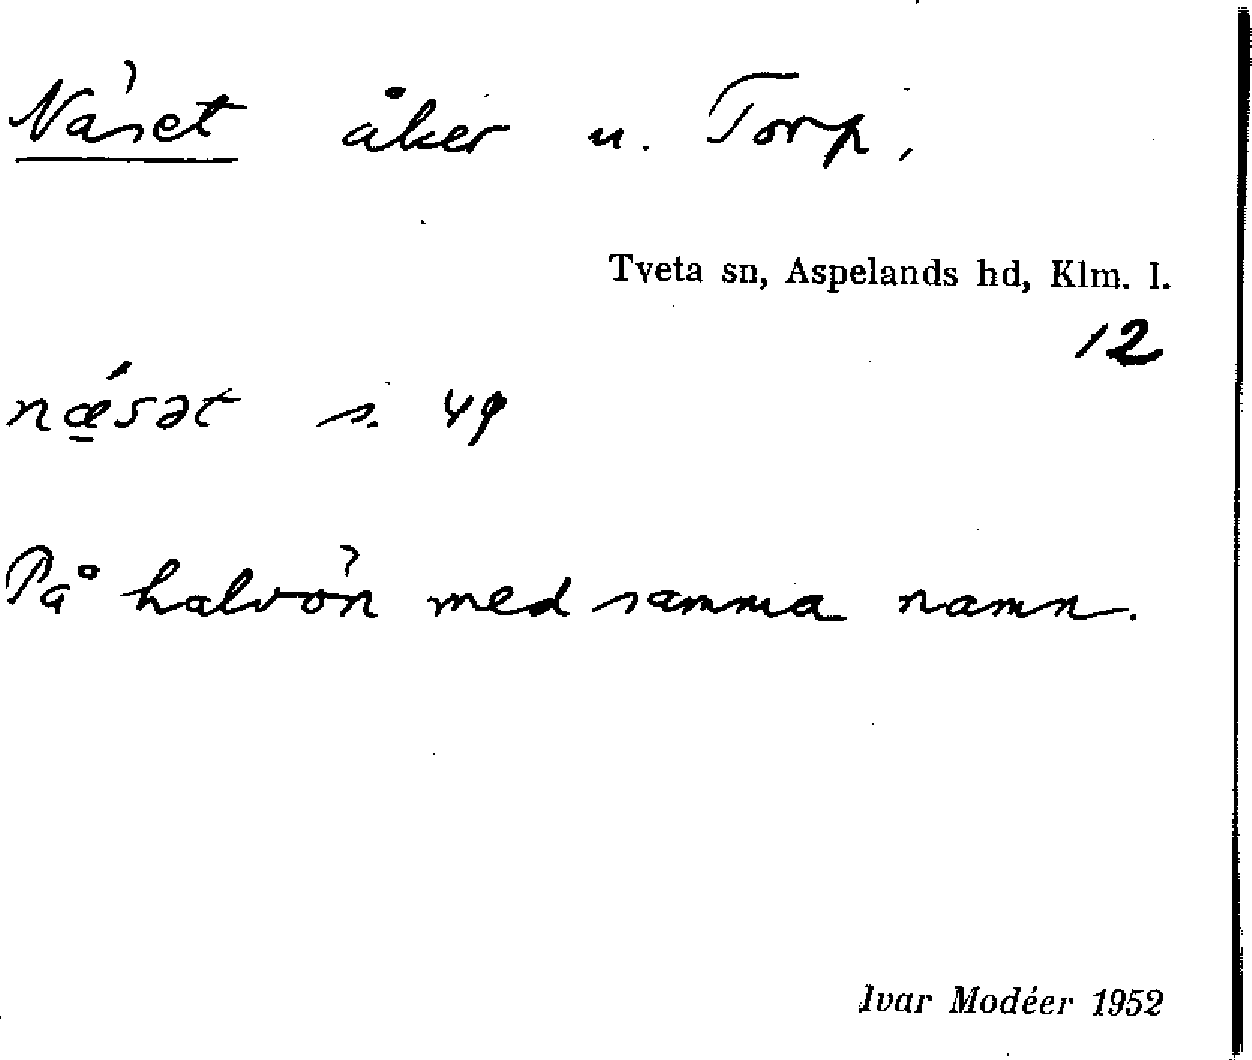 Näset åker u. Torp,
Tveta sn, Aspelands hd, Klm. l.
12
nǽ̠sət s. 49
På halvön med samma namn.
Ivar Modéer 1952